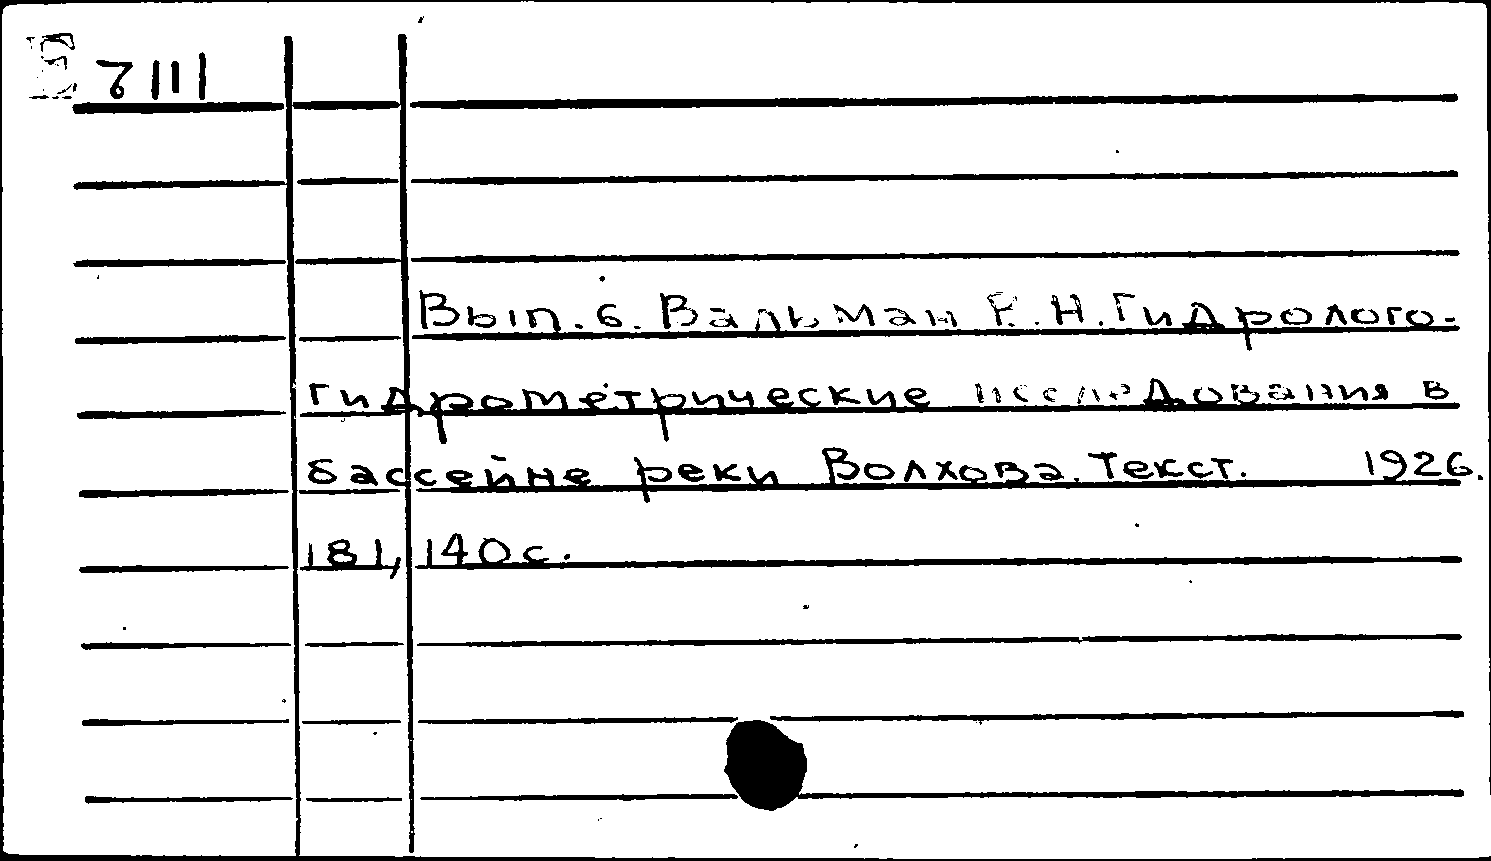 Е 7111
Вып. 6. Вальман Р. Н. Гидролого-
гидрометрические исследования в
бассейне реки Волхова. Текст. 1926.
181, 140 с.